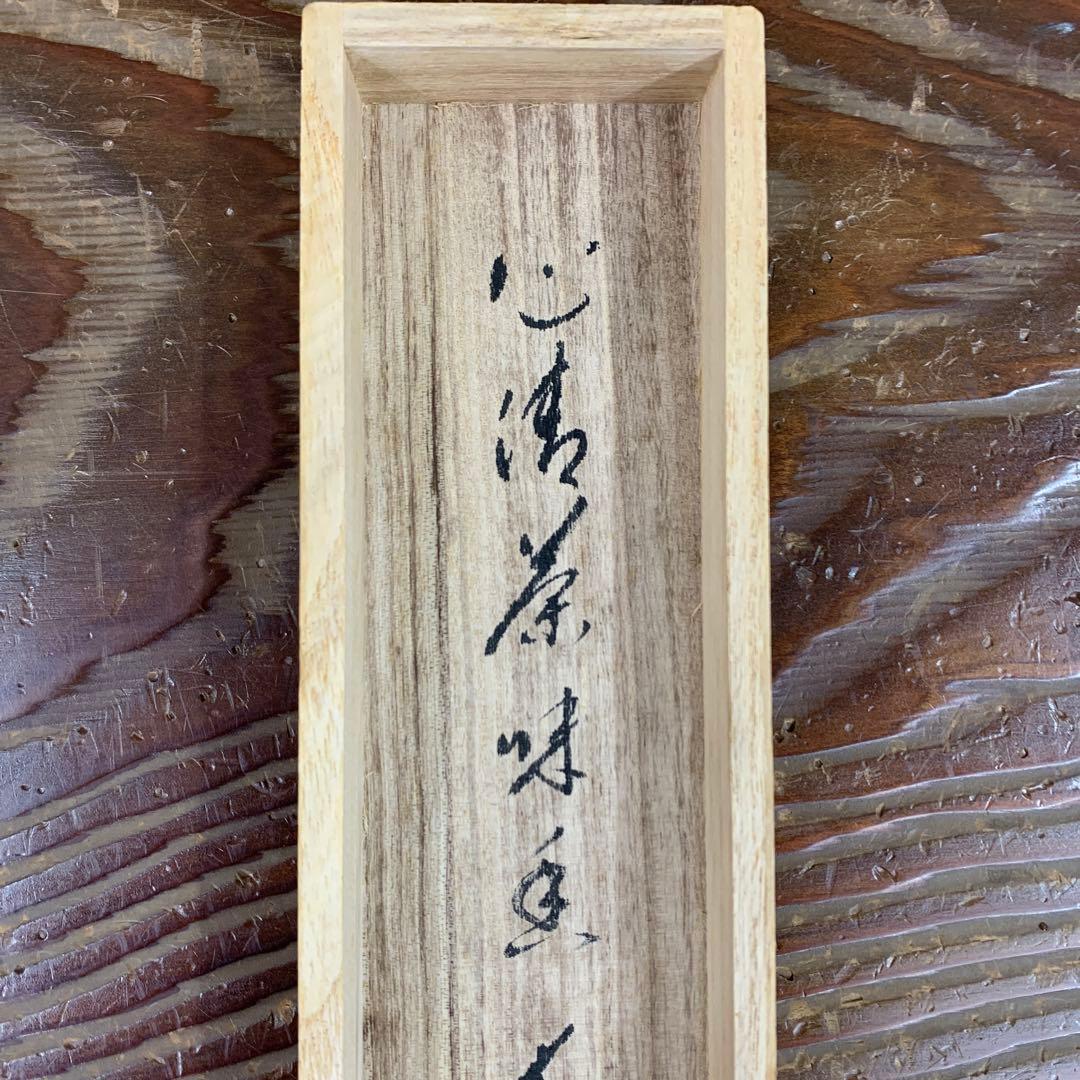 心清茶味香